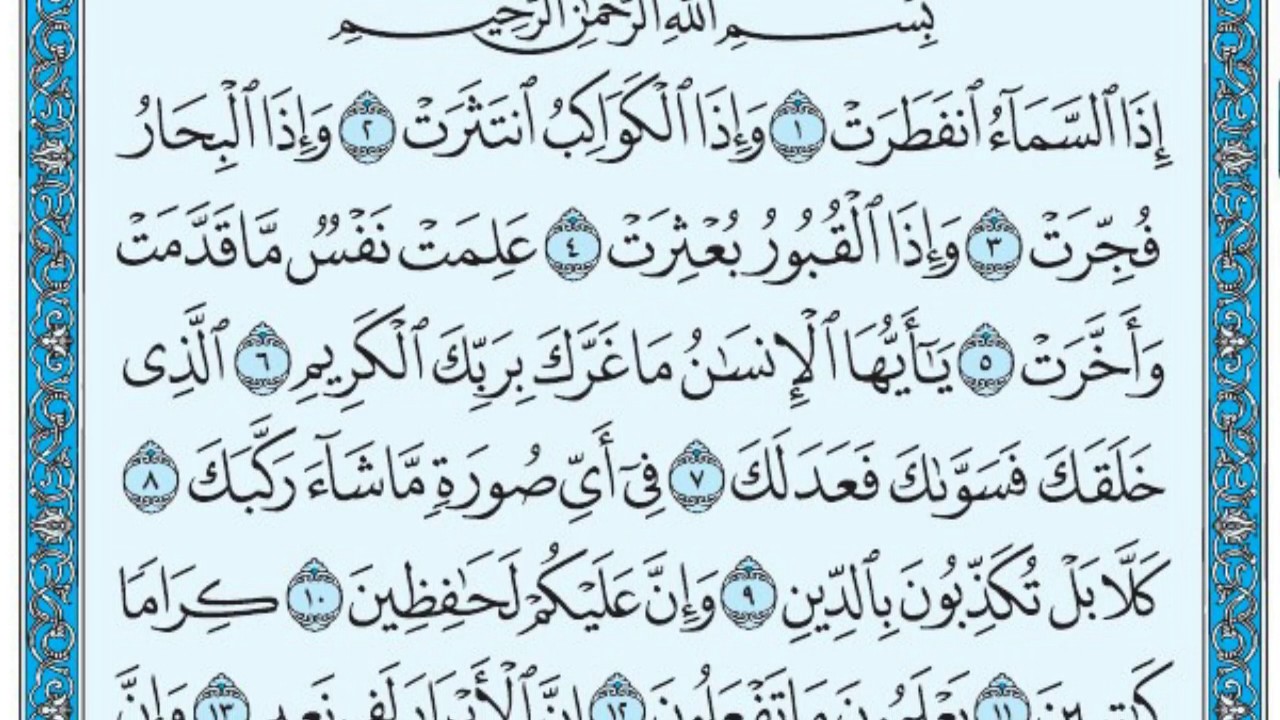 بِسْمِ اللَّهِ الرَّحْمَٰنِ الرَّحِيمِ
إِذَا ٱلسَّمَآءُ ٱنفَطَرَتْ ١ وَإِذَا ٱلْكَوَاكِبُ ٱنتَثَرَتْ ٢ وَإِذَا ٱلْبِحَارُ
فُجِّرَتْ ٣ وَإِذَا ٱلْقُبُورُ بُعْثِرَتْ ٤ عَلِمَتْ نَفْسٌ مَّا قَدَّمَتْ
وَأَخَّرَتْ ٥ يَـٰٓأَيُّهَا ٱلْإِنسَـٰنُ مَا غَرَّكَ بِرَبِّكَ ٱلْكَرِيمِ ٦ ٱلَّذِى
خَلَقَكَ فَسَوَّىٰكَ فَعَدَلَكَ ٧ فِىٓ أَىِّ صُورَةٍ مَّا شَآءَ رَكَّبَكَ ٨
كَلَّا بَلْ تُكَذِّبُونَ بِٱلدِّينِ ٩ وَإِنَّ عَلَيْكُمْ لَحَـٰفِظِينَ ١٠ كِرَامًا
كَـٰتِبِينَ ١١ يَعْلَمُونَ مَا تَفْعَلُونَ ١٢ إِنَّ ٱلْأَبْرَارَ لَفِى نَعِيمٍ ١٣ وَإِنَّ